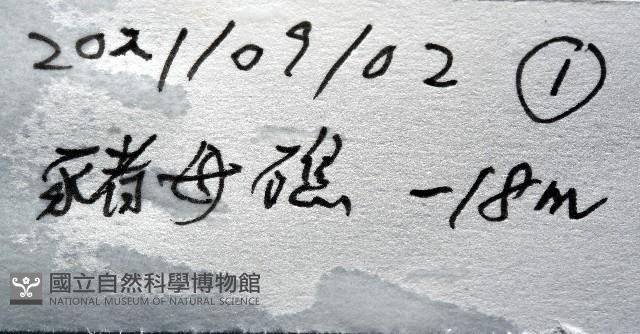 2021/09/02 ①
豬母礁 -18m
國立自然科學博物館
NATIONAL MUSEUM OF NATURAL SCIENCE